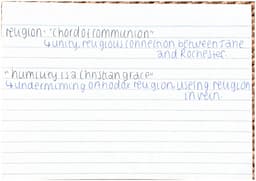 religion- "chord of communion"
↳ unity, religious connection between Jane
and Rochester.
"humility is a Christian grace"
↳ undermining orthodox religion, useing religion
in vein.